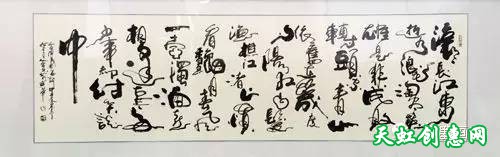 滚滚長江東
逝水浪花淘盡英
雄是非成敗
轉頭空青山
依舊在幾度
夕陽紅白髮
漁樵江渚上慣
看秋月春風
一壺濁酒喜
相逢古今多
少事都付笑談
中
天虹创意网